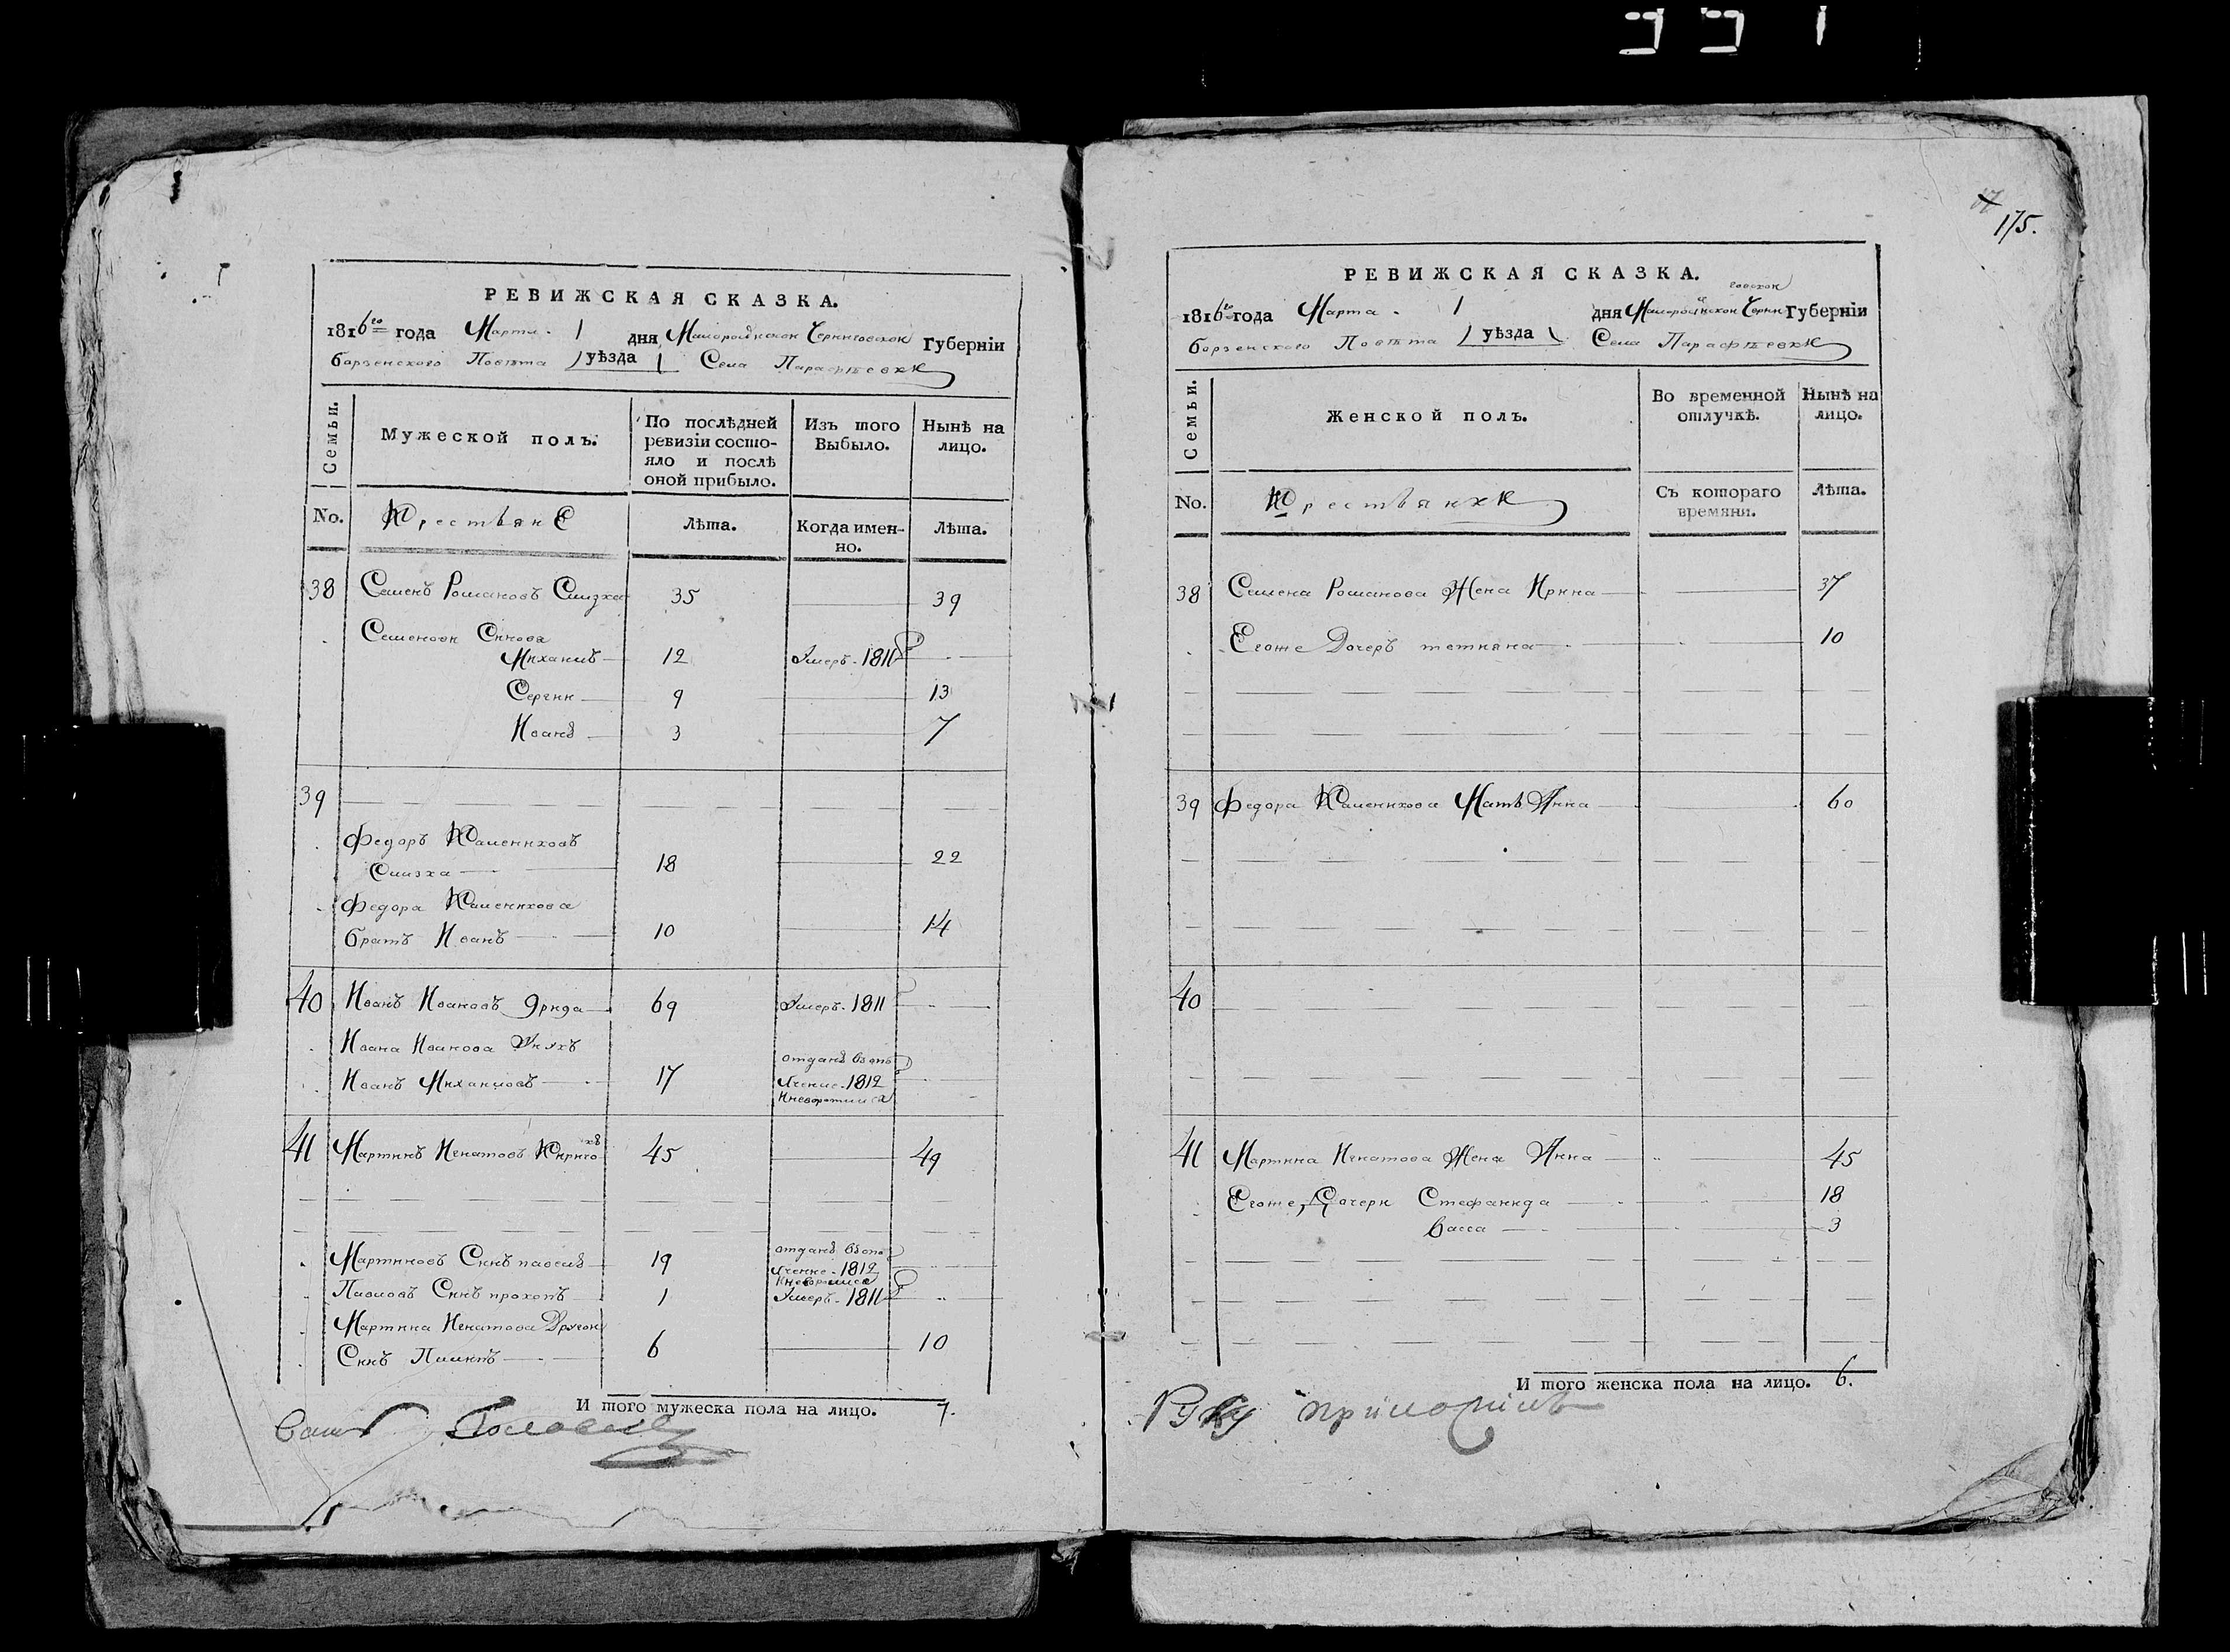 175.
РЕВИЖСКАЯ СКАЗКА.
1816го года Марта 1 дня Малоросійской Черниговской Губерніи
борзенского Повѣта (уѣзда) Села Парафѣевки
Семьи.
Мужеской полъ.
По послѣдней ревизіи состо-
яло и послѣ
оной прибыло.
Изъ того Выбыло.
Нынѣ на лицо.
No.
Крестьяне
Лѣта.
Когда имен-
но.
Лѣта.
38 Семенъ Романовъ Слизка 35 39
Семеновы Сыновя
Михаилъ 12 Умеръ. 1811
Сергии 9 13
Иванъ 3 7
39
Федоръ Калениковъ
Слизка 18 22
Федора Каленикова
братъ Иванъ 10 14
40 Иванъ Ивановъ Ярида 69 Умеръ. 1811
Ивана Иванова Унукъ
Иванъ Михаиловъ 17 отданъ взопо
лчение. 1812
Иневоротился
41 Мартинъ Игнатовъ 45 49
Мартиновъ Синъ павелъ 19 отданъ взопо
лчение. 1812
Иневоротился
Павловъ Синъ прокопъ 1 Умеръ. 1811
Мартина Игнатова Другои
Синъ Пилипъ 6 10
И того мужеска пола на лицо. 7.
РЕВИЖСКАЯ СКАЗКА.
1816го года Марта 1 дня Малоросійской Черниговской Губерніи
борзенского Повѣта (уѣзда) Села Парафѣевки
Семьи.
Женской полъ.
Во временной отлучкѣ.
Нынѣ на лицо.
No.
Крестьянки
Съ котораго времяни.
Лѣта.
38 Семена Романова Жена Ирина 37
Егоже Дочеръ тетияна 10
39 Федора Каленикова Мать Анна 60
40
41 Мартина Игнатова Жена Анна 45
Егоже Дочери Стефанида 18
Васса 3
И того женска пола на лицо. 6.
Руку приложилъ